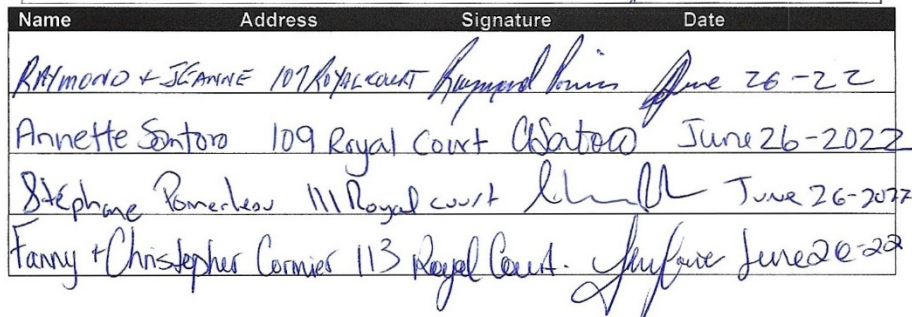 Name Address Signature Date
RAYMOND + JEANNE 107 ROYAL COURT Raymond June 26-22
Annette Santoro 109 Royal Court ASantoro June 26-2022
Stéphane Pomerleau 111 Royal court June 26-2022
Fanny + Christopher Cormier 113 Royal Court. June 26-22